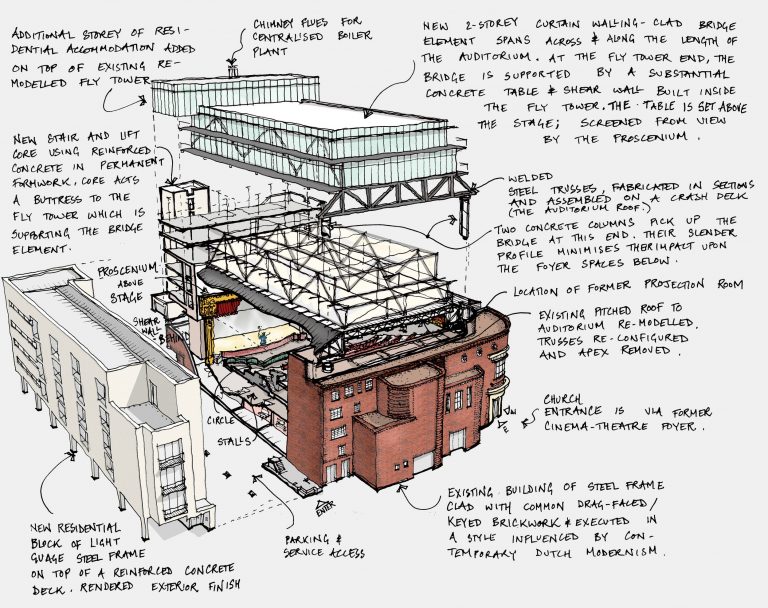 ADDITIONAL STOREY OF RESI-
DENTIAL ACCOMMODATION ADDED
ON TOP OF EXISTING RE-
MODELLED FLY TOWER
CHIMNEY FLUES FOR
CENTRALISED BOILER
PLANT
NEW 2-STOREY CURTAIN WALLING-CLAD BRIDGE
ELEMENT SPANS ACROSS & ALONG THE LENGTH OF
THE AUDITORIUM. AT THE FLY TOWER END, THE
BRIDGE IS SUPPORTED BY A SUBSTANTIAL
CONCRETE TABLE & SHEAR WALL BUILT INSIDE
THE FLY TOWER. THE TABLE IS SET ABOVE
THE STAGE; SCREENED FROM VIEW
BY THE PROSCENIUM.
NEW STAIR AND LIFT
CORE USING REINFORCED
CONCRETE IN PERMANENT
FORMWORK. CORE ACTS
A BUTTRESS TO THE
FLY TOWER WHICH IS
SUPPORTING THE BRIDGE
ELEMENT.
WELDED
STEEL TRUSSES, FABRICATED IN SECTIONS
AND ASSEMBLED ON A CRASH DECK
(THE AUDITORIUM ROOF.)
TWO CONCRETE COLUMNS PICK UP THE
BRIDGE AT THIS END. THEIR SLENDER
PROFILE MINIMISES THEIR IMPACT UPON
THE FOYER SPACES BELOW.
PROSCENIUM
ABOVE
STAGE
SHEAR
WALL
BEHIND
LOCATION OF FORMER PROJECTION ROOM
EXISTING PITCHED ROOF TO
AUDITORIUM RE-MODELLED.
TRUSSES RE-CONFIGURED
AND APEX REMOVED.
CIRCLE
STALLS
CHURCH
ENTRANCE IS VIA FORMER
CINEMA-THEATRE FOYER.
NEW RESIDENTIAL
BLOCK OF LIGHT
GUAGE STEEL FRAME
ON TOP OF A REINFORCED CONCRETE
DECK. RENDERED EXTERIOR FINISH
PARKING &
SERVICE ACCESS
ENTER
EXISTING BUILDING OF STEEL FRAME
CLAD WITH COMMON DRAG-FACED/
KEYED BRICKWORK & EXECUTED IN
A STYLE INFLUENCED BY CON-
TEMPORARY DUTCH MODERNISM.